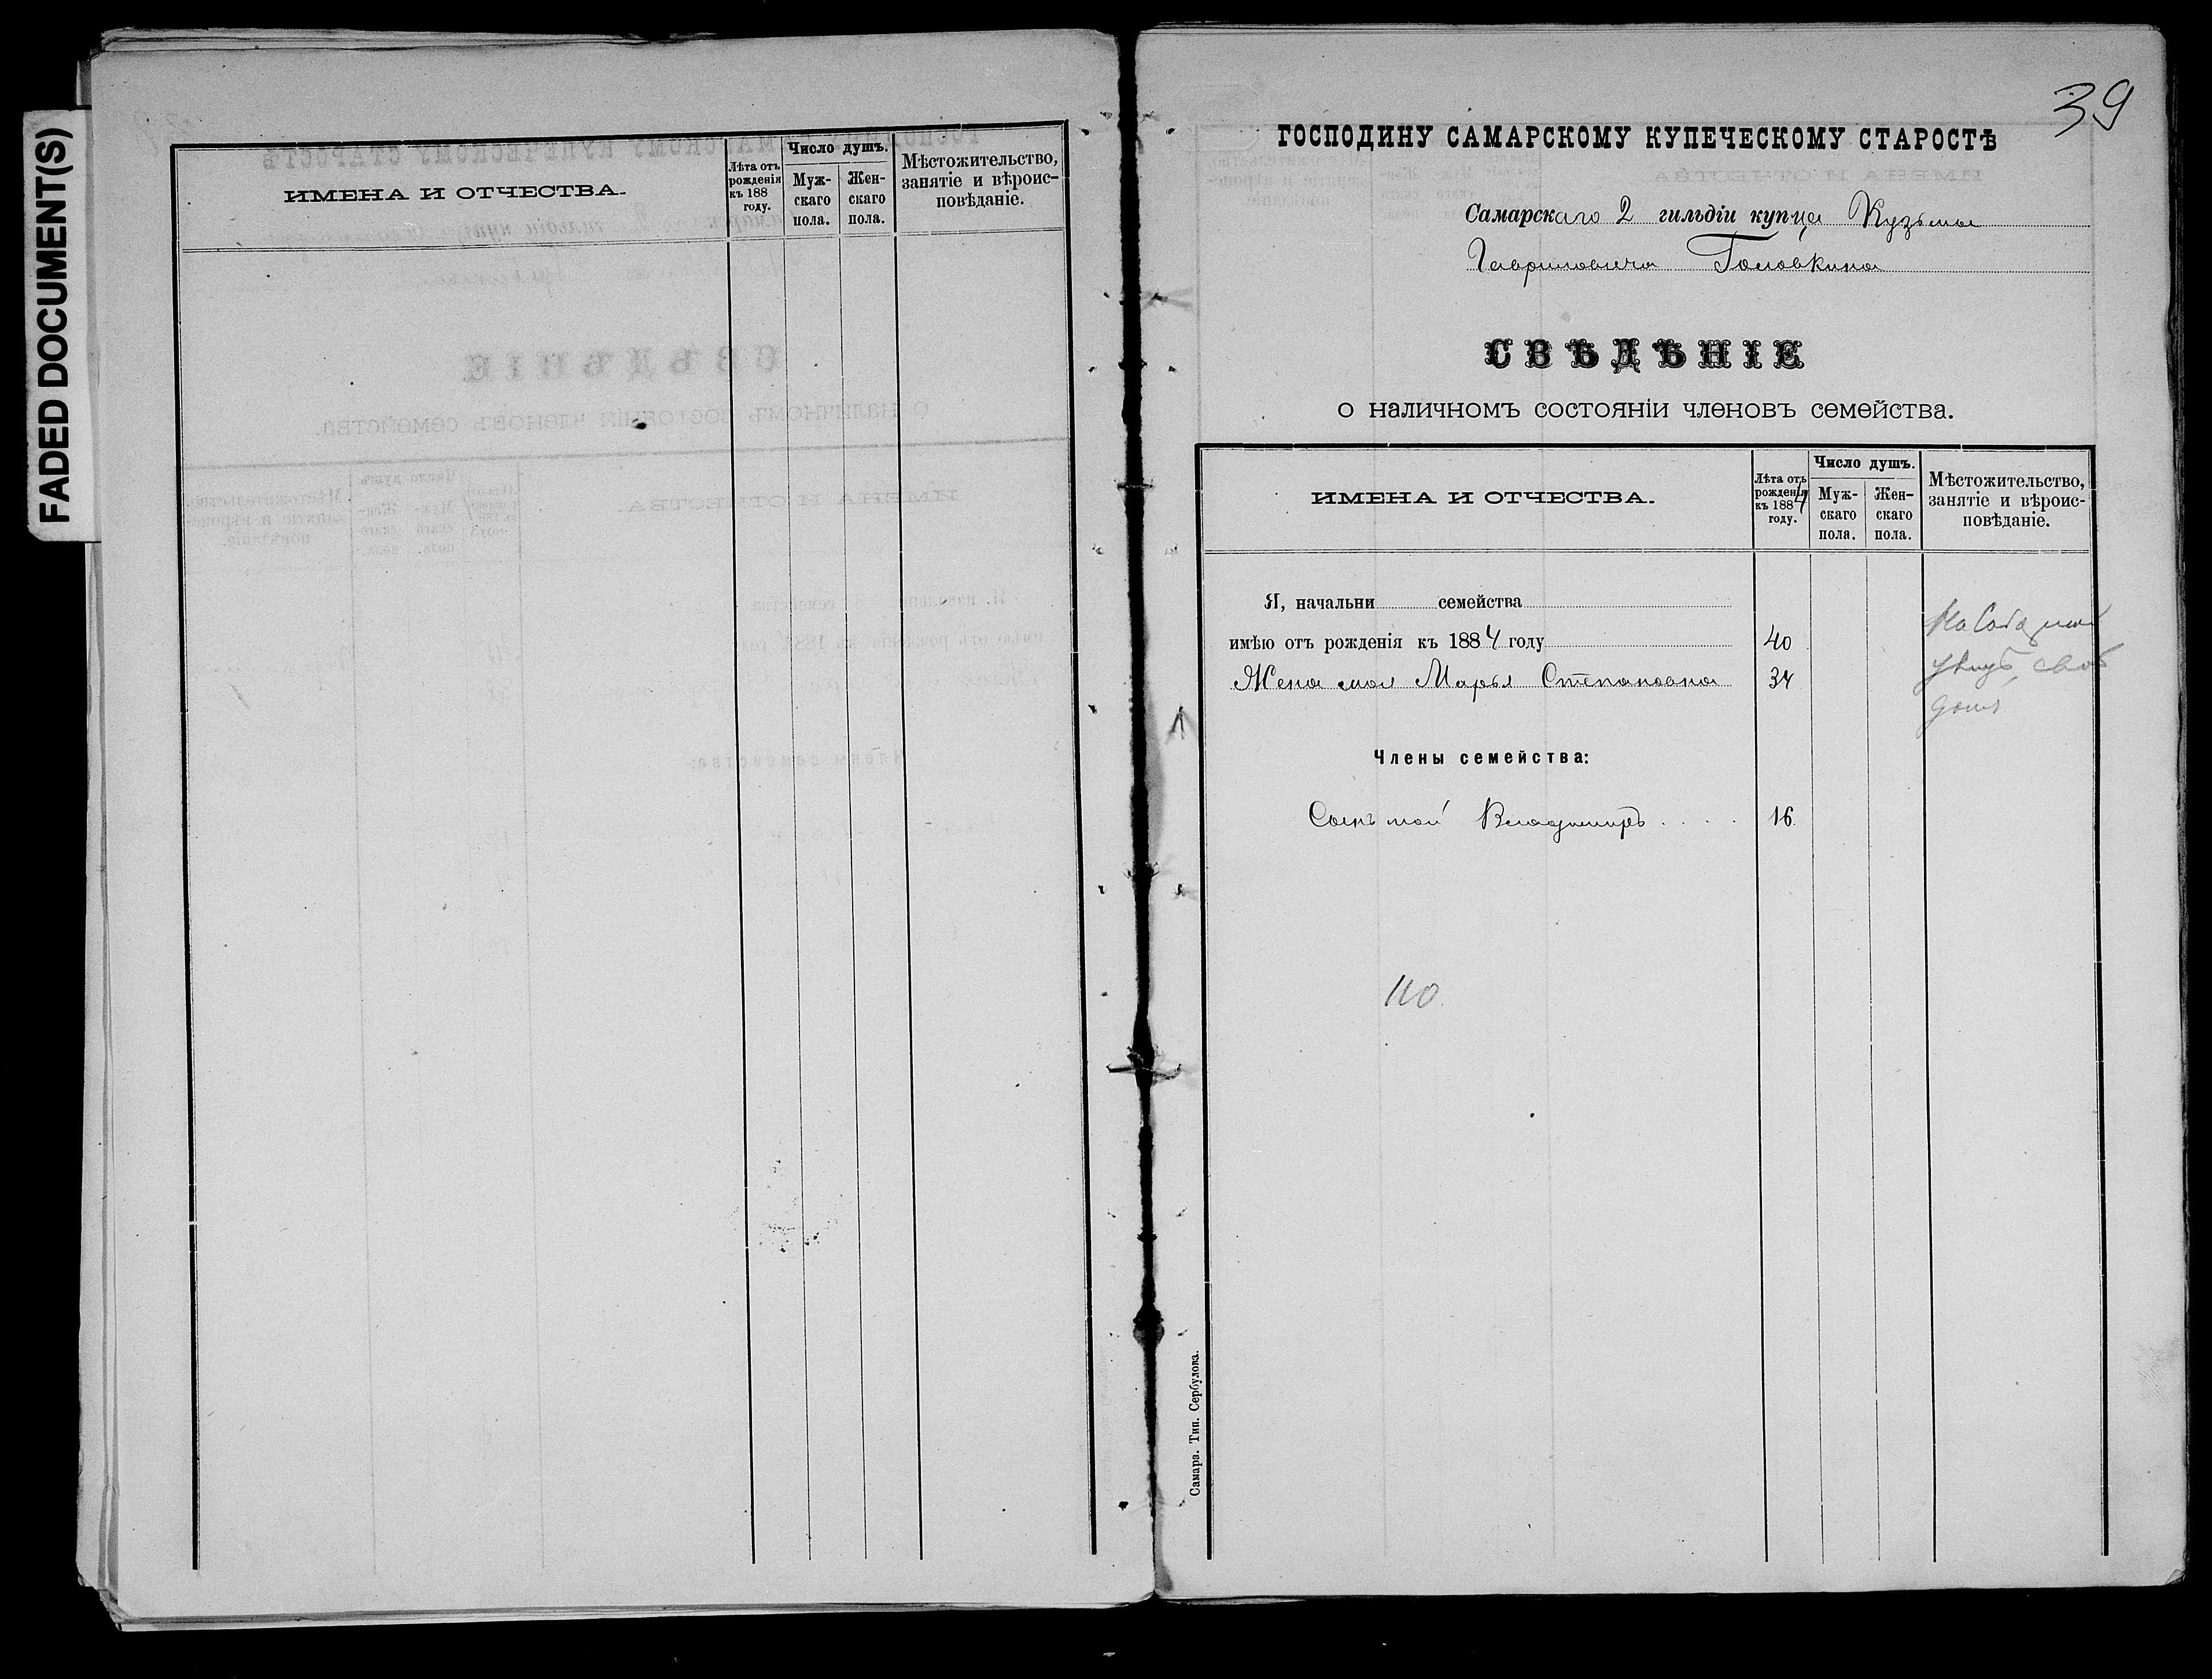 FADED DOCUMENT(S)
ИМЕНА И ОТЧЕСТВА.
Лѣта отъ рожденія къ 188 году.
Число душъ.
Мужскаго пола.
Женскаго пола.
Мѣстожительство, занятіе и вѣроисповѣданіе.
39
ГОСПОДИНУ САМАРСКОМУ КУПЕЧЕСКОМУ СТАРОСТѢ
Самарскаго 2 гильдіи купца Кузьмы
Гавриловича Головкина
СВѢДѢНІЕ
О НАЛИЧНОМЪ СОСТОЯНІИ ЧЛЕНОВЪ СЕМЕЙСТВА.
ИМЕНА И ОТЧЕСТВА.
Лѣта отъ
рожденія
къ 1884
году.
Число душъ.
Муж-
скаго
пола.
Жен-
скаго
пола.
Мѣстожительство,
занятіе и вѣроис-
повѣданіе.
Я, начальни семейства
имѣю отъ рожденія къ 1884 году 40
Жена моя Марья Степановна 34
На
домъ
Члены семейства:
Сынъ мой Владимиръ . . . . 16.
110.
Самара. Тип. Сербулова.